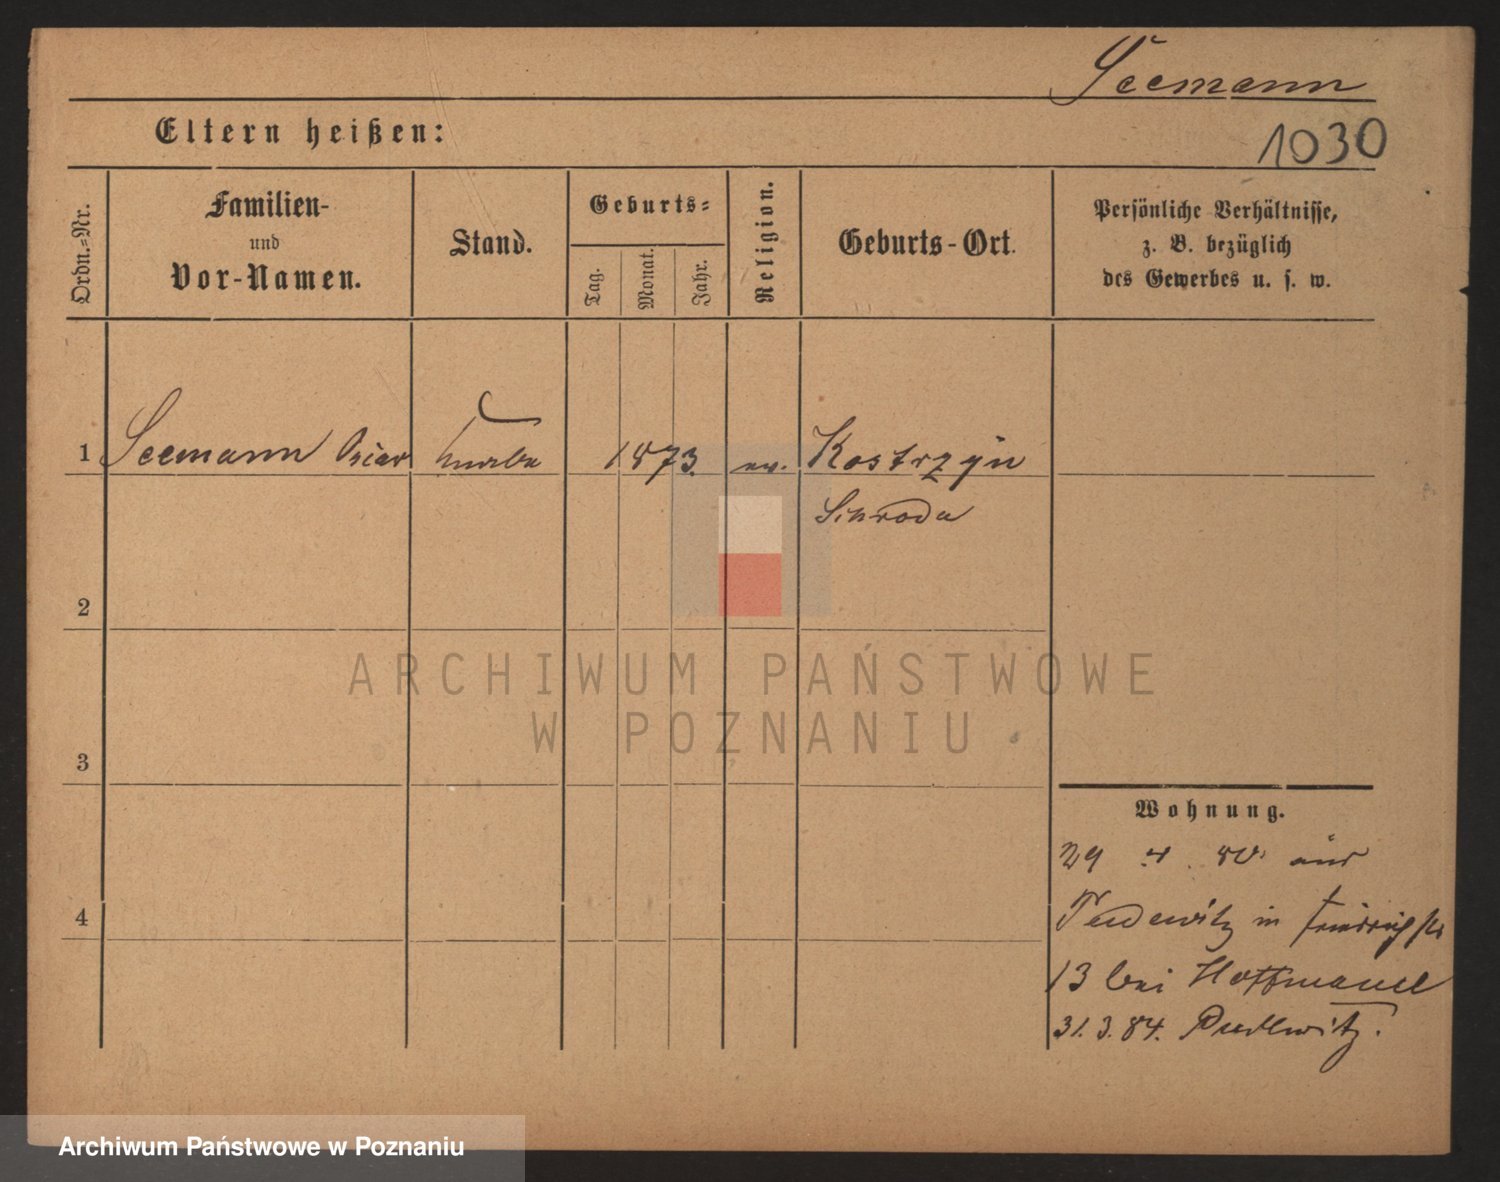 Seemann
Eltern heißen:
1030
Ordn.=Nr.
Familien-
und
Vor-Namen.
Stand.
Geburts=
Tag.
Monat.
Jahr.
Religion.
Geburts-Ort.
Persönliche Verhältnisse,
z. B. bezüglich
des Gewerbes u. s. w.
1 Seemann Oscar Knabe 1873. ev. Kostrzyn
Schroda
2
ARCHIWUM PAŃSTWOWE
W POZNANIU
3
Wohnung.
29 4. 80. aus
Pudewitz in Friedrichstr
4
13 bei Hoffmann
31.3.84. Pudewitz.
Archiwum Państwowe w Poznaniu